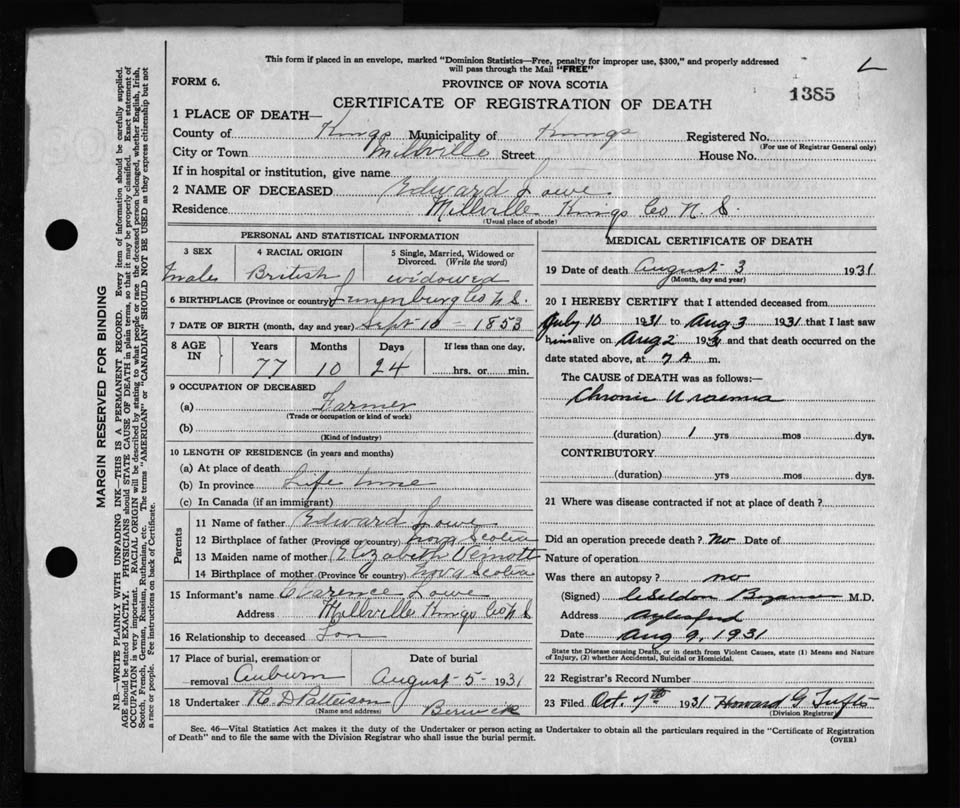 This form if placed in an envelope, marked "Dominion Statistics—Free, penalty for improper use, $300," and properly addressed
will pass through the Mail "FREE"
FORM 6.
PROVINCE OF NOVA SCOTIA
1385
CERTIFICATE OF REGISTRATION OF DEATH
1 PLACE OF DEATH—
County of Kings Municipality of Kings Registered No.
(For use of Registrar General only)
City or Town Millville Street House No.
If in hospital or institution, give name
2 NAME OF DECEASED Edward Lowe
Residence Millville Kings Co. N. S.
(Usual place of abode)
PERSONAL AND STATISTICAL INFORMATION
3 SEX 4 RACIAL ORIGIN 5 Single, Married, Widowed or
Divorced. (Write the word)
Male British widowed
6 BIRTHPLACE (Province or country) Lunenburg Co N. S.
7 DATE OF BIRTH (month, day and year) Sept 10 - 1853
8 AGE IN Years Months Days If less than one day,
77 10 24 hrs. or min.
9 OCCUPATION OF DECEASED
(a) Farmer
(Trade or occupation or kind of work)
(b)
(Kind of industry)
10 LENGTH OF RESIDENCE (in years and months)
(a) At place of death
(b) In province Life time
(c) In Canada (if an immigrant)
Parents
11 Name of father Edward Lowe
12 Birthplace of father (Province or country) Nova Scotia
13 Maiden name of mother Elizabeth
14 Birthplace of mother (Province or country) Nova Scotia
15 Informant's name Clarence Lowe
Address Millville Kings Co N S
16 Relationship to deceased Son
17 Place of burial, cremation or Date of burial
removal Auburn August 5 - 1931
18 Undertaker H. D Patterson Berwick
(Name and address)
MEDICAL CERTIFICATE OF DEATH
19 Date of death August 3 1931
(Month, day and year)
20 I HEREBY CERTIFY that I attended deceased from
July 10 1931 to Aug 3 1931 that I last saw
him alive on Aug 2 1931 and that death occurred on the
date stated above, at 7 A m.
The CAUSE of DEATH was as follows:—
Chronic Uraemia
(duration) 1 yrs mos dys.
CONTRIBUTORY
(duration) yrs mos dys.
21 Where was disease contracted if not at place of death?
Did an operation precede death? No Date of
Nature of operation
Was there an autopsy? no
(Signed) M.D.
Address Aylesford
Date Aug 9, 1931
State the Disease causing Death, or in death from Violent Causes, state (1) Means and Nature
of Injury, (2) whether Accidental, Suicidal or Homicidal.
22 Registrar's Record Number
23 Filed Oct. 7th 1931 Howard G Tufts
(Division Registrar)
Sec. 46—Vital Statistics Act makes it the duty of the Undertaker or person acting as Undertaker to obtain all the particulars required in the "Certificate of Registration
of Death" and to file the same with the Division Registrar who shall issue the burial permit.
(OVER)
MARGIN RESERVED FOR BINDING
N.B.—WRITE PLAINLY WITH UNFADING INK—THIS IS A PERMANENT RECORD. Every item of information should be carefully supplied.
AGE should be stated EXACTLY. PHYSICIANS should STATE CAUSE OF DEATH in plain terms, so that it may be properly classified. Exact statement of
OCCUPATION is very important. RACIAL ORIGIN will be described by stating to what people or race the deceased person belonged, whether English, Irish,
Scotch, French, German, Russian, Ruthenian, etc. The terms "AMERICAN" or "CANADIAN" SHOULD NOT BE USED as they express citizenship but not
a race or people. See instructions on back of Certificate.